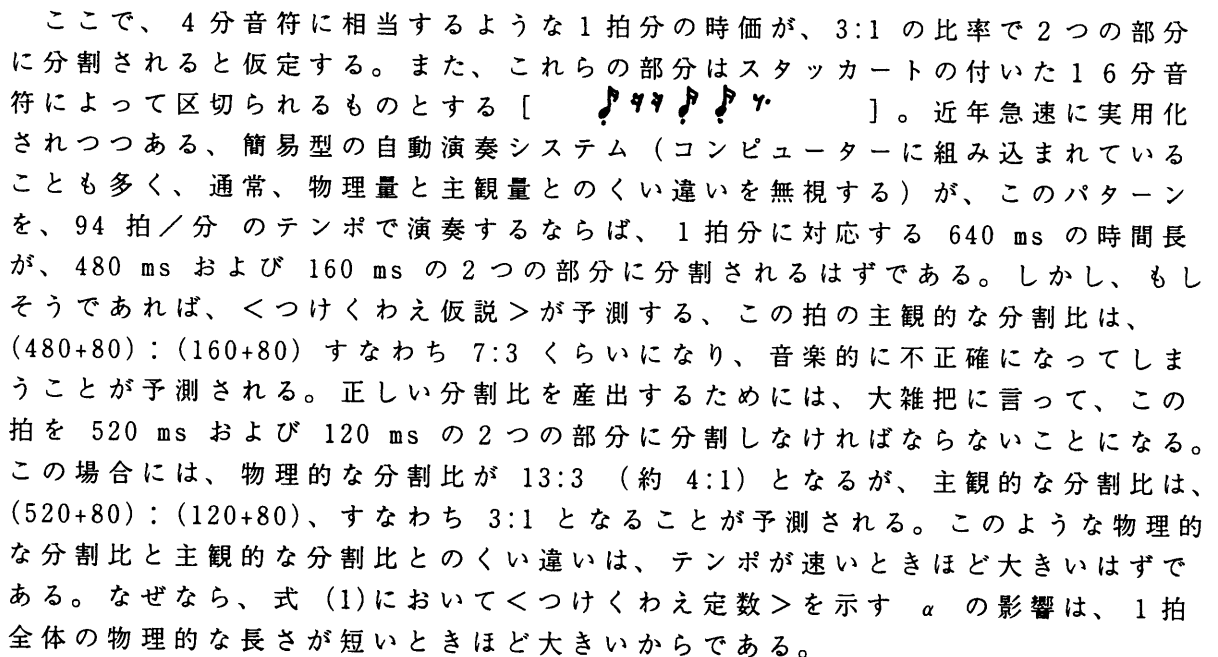 ここで、4分音符に相当するような1拍分の時価が、3:1 の比率で2つの部分
に分割されると仮定する。また、これらの部分はスタッカートの付いた16分音
符によって区切られるものとする [ ] 。近年急速に実用化
されつつある、簡易型の自動演奏システム(コンピューターに組み込まれている
ことも多く、通常、物理量と主観量とのくい違いを無視する)が、このパターン
を、94 拍/分 のテンポで演奏するならば、1拍分に対応する 640 ms の時間長
が、480 ms および 160 ms の2つの部分に分割されるはずである。しかし、もし
そうであれば、<つけくわえ仮説>が予測する、この拍の主観的な分割比は、
(480+80):(160+80) すなわち 7:3 くらいになり、音楽的に不正確になってしま
うことが予測される。正しい分割比を産出するためには、大雑把に言って、この
拍を 520 ms および 120 ms の2つの部分に分割しなければならないことになる。
この場合には、物理的な分割比が 13:3 (約 4:1) となるが、主観的な分割比は、
(520+80):(120+80)、すなわち 3:1 となることが予測される。このような物理的
な分割比と主観的な分割比とのくい違いは、テンポが速いときほど大きいはずで
ある。なぜなら、式 (1)において<つけくわえ定数>を示す α の影響は、1拍
全体の物理的な長さが短いときほど大きいからである。